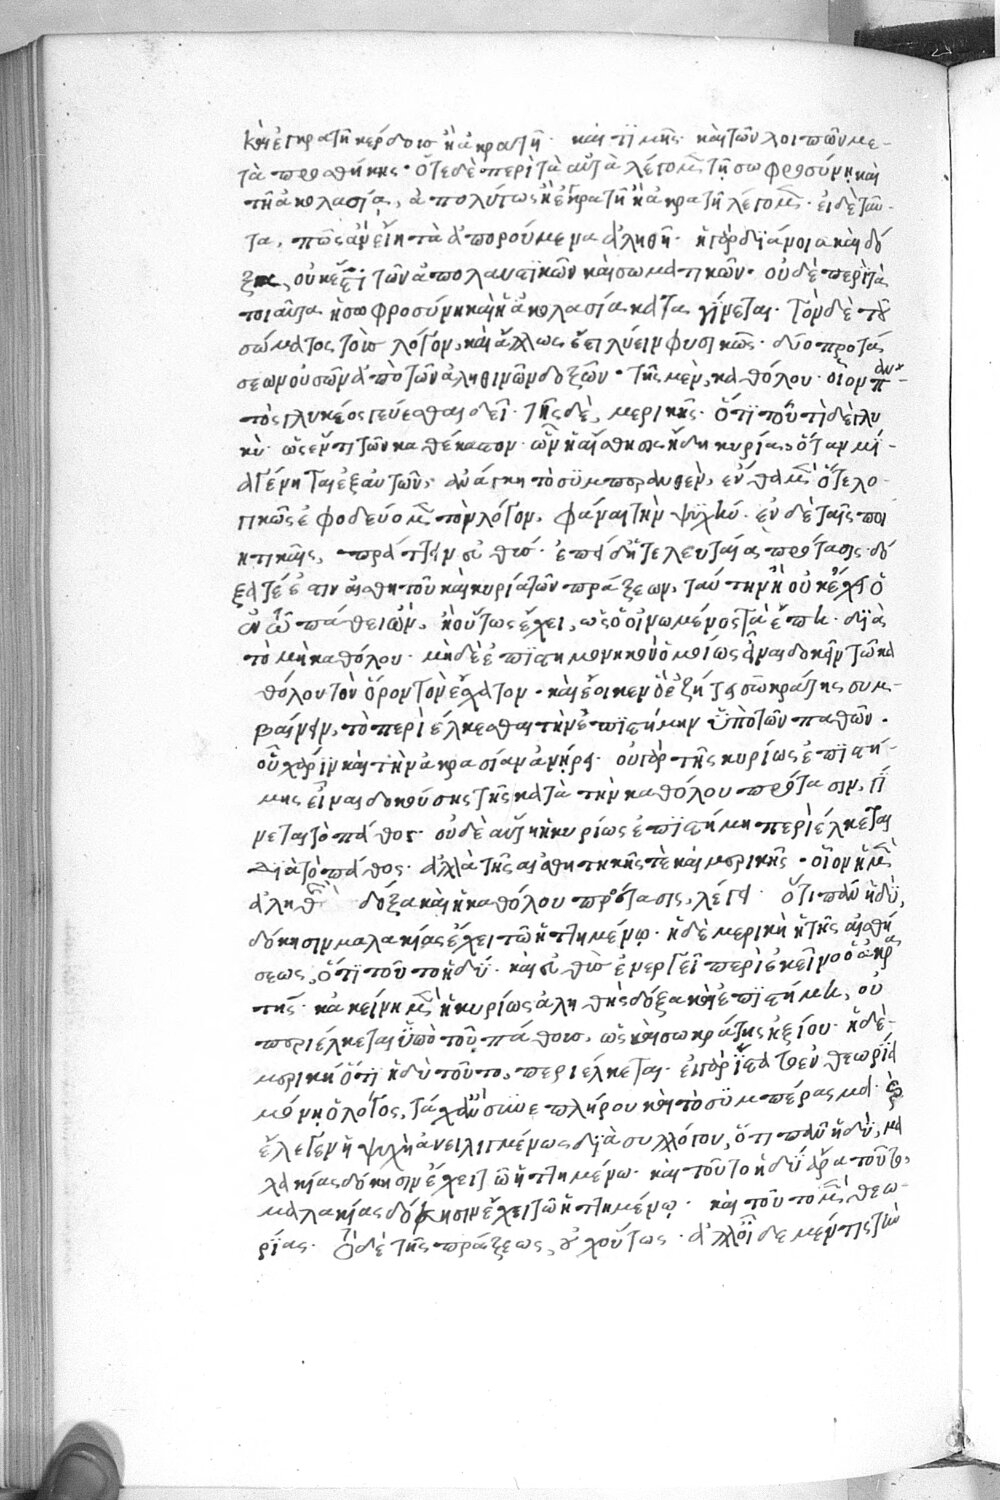 καὶ ἐγκρατῆ κέρδους ἢ ἀκρατῆ· καὶ τιμῆς· καὶ τῶν λοιπῶν με-
τὰ προσθήκης· ὅτε δὲ περὶ τὰ αὐτὰ λέγομεν τῇ σωφροσύνῃ καὶ
τῇ ἀκολασίᾳ, ἀπολύτως ἢ ἐγκρατῆ ἢ ἀκρατῆ λέγομεν· εἰ δὲ ταῦ-
τα, πῶς ἂν εἴη τὰ ἀπορούμενα ἀληθῆ· ἡ γὰρ διάνοια καὶ δό
ξα, οὐκ ἔστι τῶν ἀπολαυστικῶν καὶ σωματικῶν· οὐδὲ περὶ τὰ
τοιαῦτα ἡ σωφροσύνη καὶ ἡ ἀκολασία κατα γίνεται· τὸν δὲ τοῦ
σώματος τοὺς λόγον, καὶ ἄλλως ἔστι λύειν φυσικῶς· δύο προτά
σεων οὐσῶν ἀπὸ τῶν ἀληθινῶν δοξῶν· τῆς μὲν, καθόλου· οἷον παν
τὸς γλυκέος γεύεσθαι δεῖ· τῆς δὲ, μερικῆς· ὅτι τοῦτὶ δὲ γλυ
κὺ· ὡς ἕν τι τῶν καθέκαστον· ὧν ἡ αἴσθησις ἤδη κυρία, ὅταν μί-
α γένηται ἐξ αὐτῶν, ἀνάγκη τὸ συμπερανθὲν, ἐνθα μὲν ὅτε λο-
γικῶς ἐφοδεύομεν τὸν λόγον, φάναι τὴν ψυχὴν· ἐν δὲ ταῖς ποι
ητικαῖς, πράττειν εὐθύς· ἐπεὶ δὴ τελευταία πρότασις δό
ξα τέ ἐστιν αἰσθητοῦ καὶ κυρία τῶν πράξεων, ταύτην ἢ οὐκ ἔχει ὁ
ἐν τῷ πάθει ὢν, ἢ οὕτως ἔχει, ὡς ὁ οἰνωμένος τὰ ἔπη· διὰ
τὸ μὴ καθόλου· μηδὲ ἐπιστημονικὸν ὁμοίως εἶναι δοκεῖν τῷ κα
θόλου τὸν ὅρον τὸν ἔσχατον· καὶ ἔοικεν ὃ ἐζήτει σωκράτης συμ-
βαίνειν, τὸ περιέλκεσθαι τὴν ἐπιστήμην ὑπὸ τῶν παθῶν·
οὐ χορεῖν καὶ τὴν ἀκρασίαν ἀνήρει· οὐ γὰρ τῆς κυρίως ἐπιστή-
μης εἶναι δοκούσης τῆς κατὰ τὴν καθόλου πρότασιν, γί
νεται τὸ πάθος· οὐδὲ αὕτη ἡ κυρίως ἐπιστήμη περιέλκεται
διὰ τὸ πάθος· ἀλλὰ τῆς αἰσθητικῆς τε καὶ μερικῆς· οἷον ἡ μὲν
ἀληθὴς δόξα καὶ ἡ καθόλου πρότασις, λέγει· ὅτι πᾶν ἡδὺ,
δόκησιν μαλακίας ἔχει τῷ ἡττημένῳ· ἡ δὲ μερικὴ ἡ τῆς αἰσθή
σεως, ὅτι τοῦτο ἡδὺ· καὶ εὐθὺς ἐνεργεῖ περὶ ἐκεῖνο ὁ ἀκρα
τής· κἀκείνη μὲν ἡ κυρίως ἀληθὴς δόξα καὶ ἐπιστήμη, οὐ
περιέλκεται ὑπὸ τοῦ πάθους, ὡς καὶ σωκράτης ἠξίου· ἡ δὲ
μερικὴ ὅτι ἡδὺ τοῦτο, περιέλκεται· εἰ γὰρ ἵστατο ἐν θεωρίᾳ
μόνῃ ὁ λόγος, τάχ ἂν συνεπληροῦ καὶ τὸ συμπέρασμα· καὶ
ἔλεγεν ἡ ψυχὴ ἀνειλιγμένως διὰ συλλόγου, ὅτι πᾶν ἡδὺ, μα
λακίας δόκησιν ἔχει τῷ ἡττημένῳ· καὶ τοῦτο ἡδὺ ἄρα τοῦτο,
μαλακίας δόκησιν ἔχει τῷ ἡττημένῳ· καὶ τοῦτο μὲν θεω-
ρίας· ὁ δὲ τῆς πράξεως, οὐχ οὕτως· ἀλλ οἶδε μέν τις τῶν